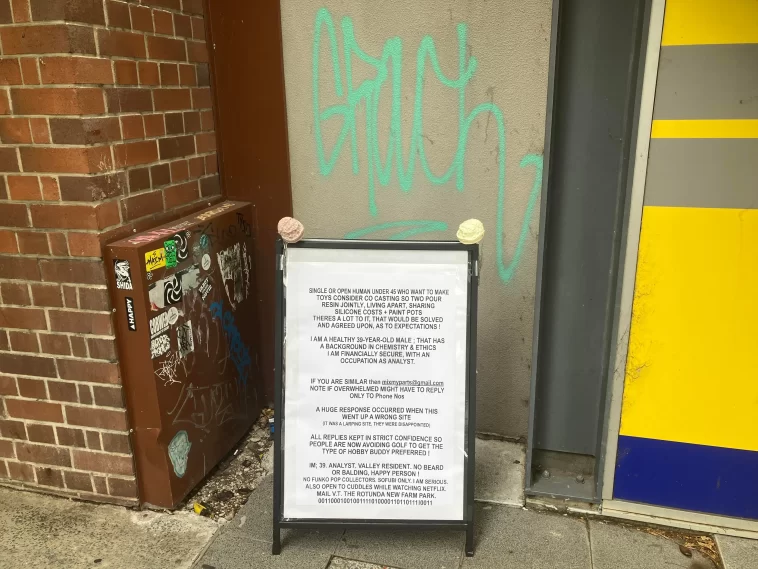 SHIDA
HAPPY
SINGLE OR OPEN HUMAN UNDER 45 WHO WANT TO MAKE
TOYS CONSIDER CO CASTING SO TWO POUR
RESIN JOINTLY, LIVING APART, SHARING
SILICONE COSTS + PAINT POTS
THERES A LOT TO IT, THAT WOULD BE SOLVED
AND AGREED UPON, AS TO EXPECTATIONS !
I AM A HEALTHY 39-YEAR-OLD MALE ; THAT HAS
A BACKGROUND IN CHEMISTRY & ETHICS
I AM FINANCIALLY SECURE, WITH AN
OCCUPATION AS ANALYST.
IF YOU ARE SIMILAR then mixmyparts@gmail.com
NOTE IF OVERWHELMED MIGHT HAVE TO REPLY
ONLY TO Phone Nos
A HUGE RESPONSE OCCURRED WHEN THIS
WENT UP A WRONG SITE
(IT WAS A LARPING SITE, THEY WERE DISAPPOINTED)
ALL REPLIES KEPT IN STRICT CONFIDENCE SO
PEOPLE ARE NOW AVOIDING GOLF TO GET THE
TYPE OF HOBBY BUDDY PREFERRED !
IM; 39. ANALYST. VALLEY RESIDENT. NO BEARD
OR BALDING, HAPPY PERSON !
NO FUNKO POP COLLECTORS. SOFUBI ONLY. I AM SERIOUS.
ALSO OPEN TO CUDDLES WHILE WATCHING NETFLIX.
MAIL V.T. THE ROTUNDA NEW FARM PARK.